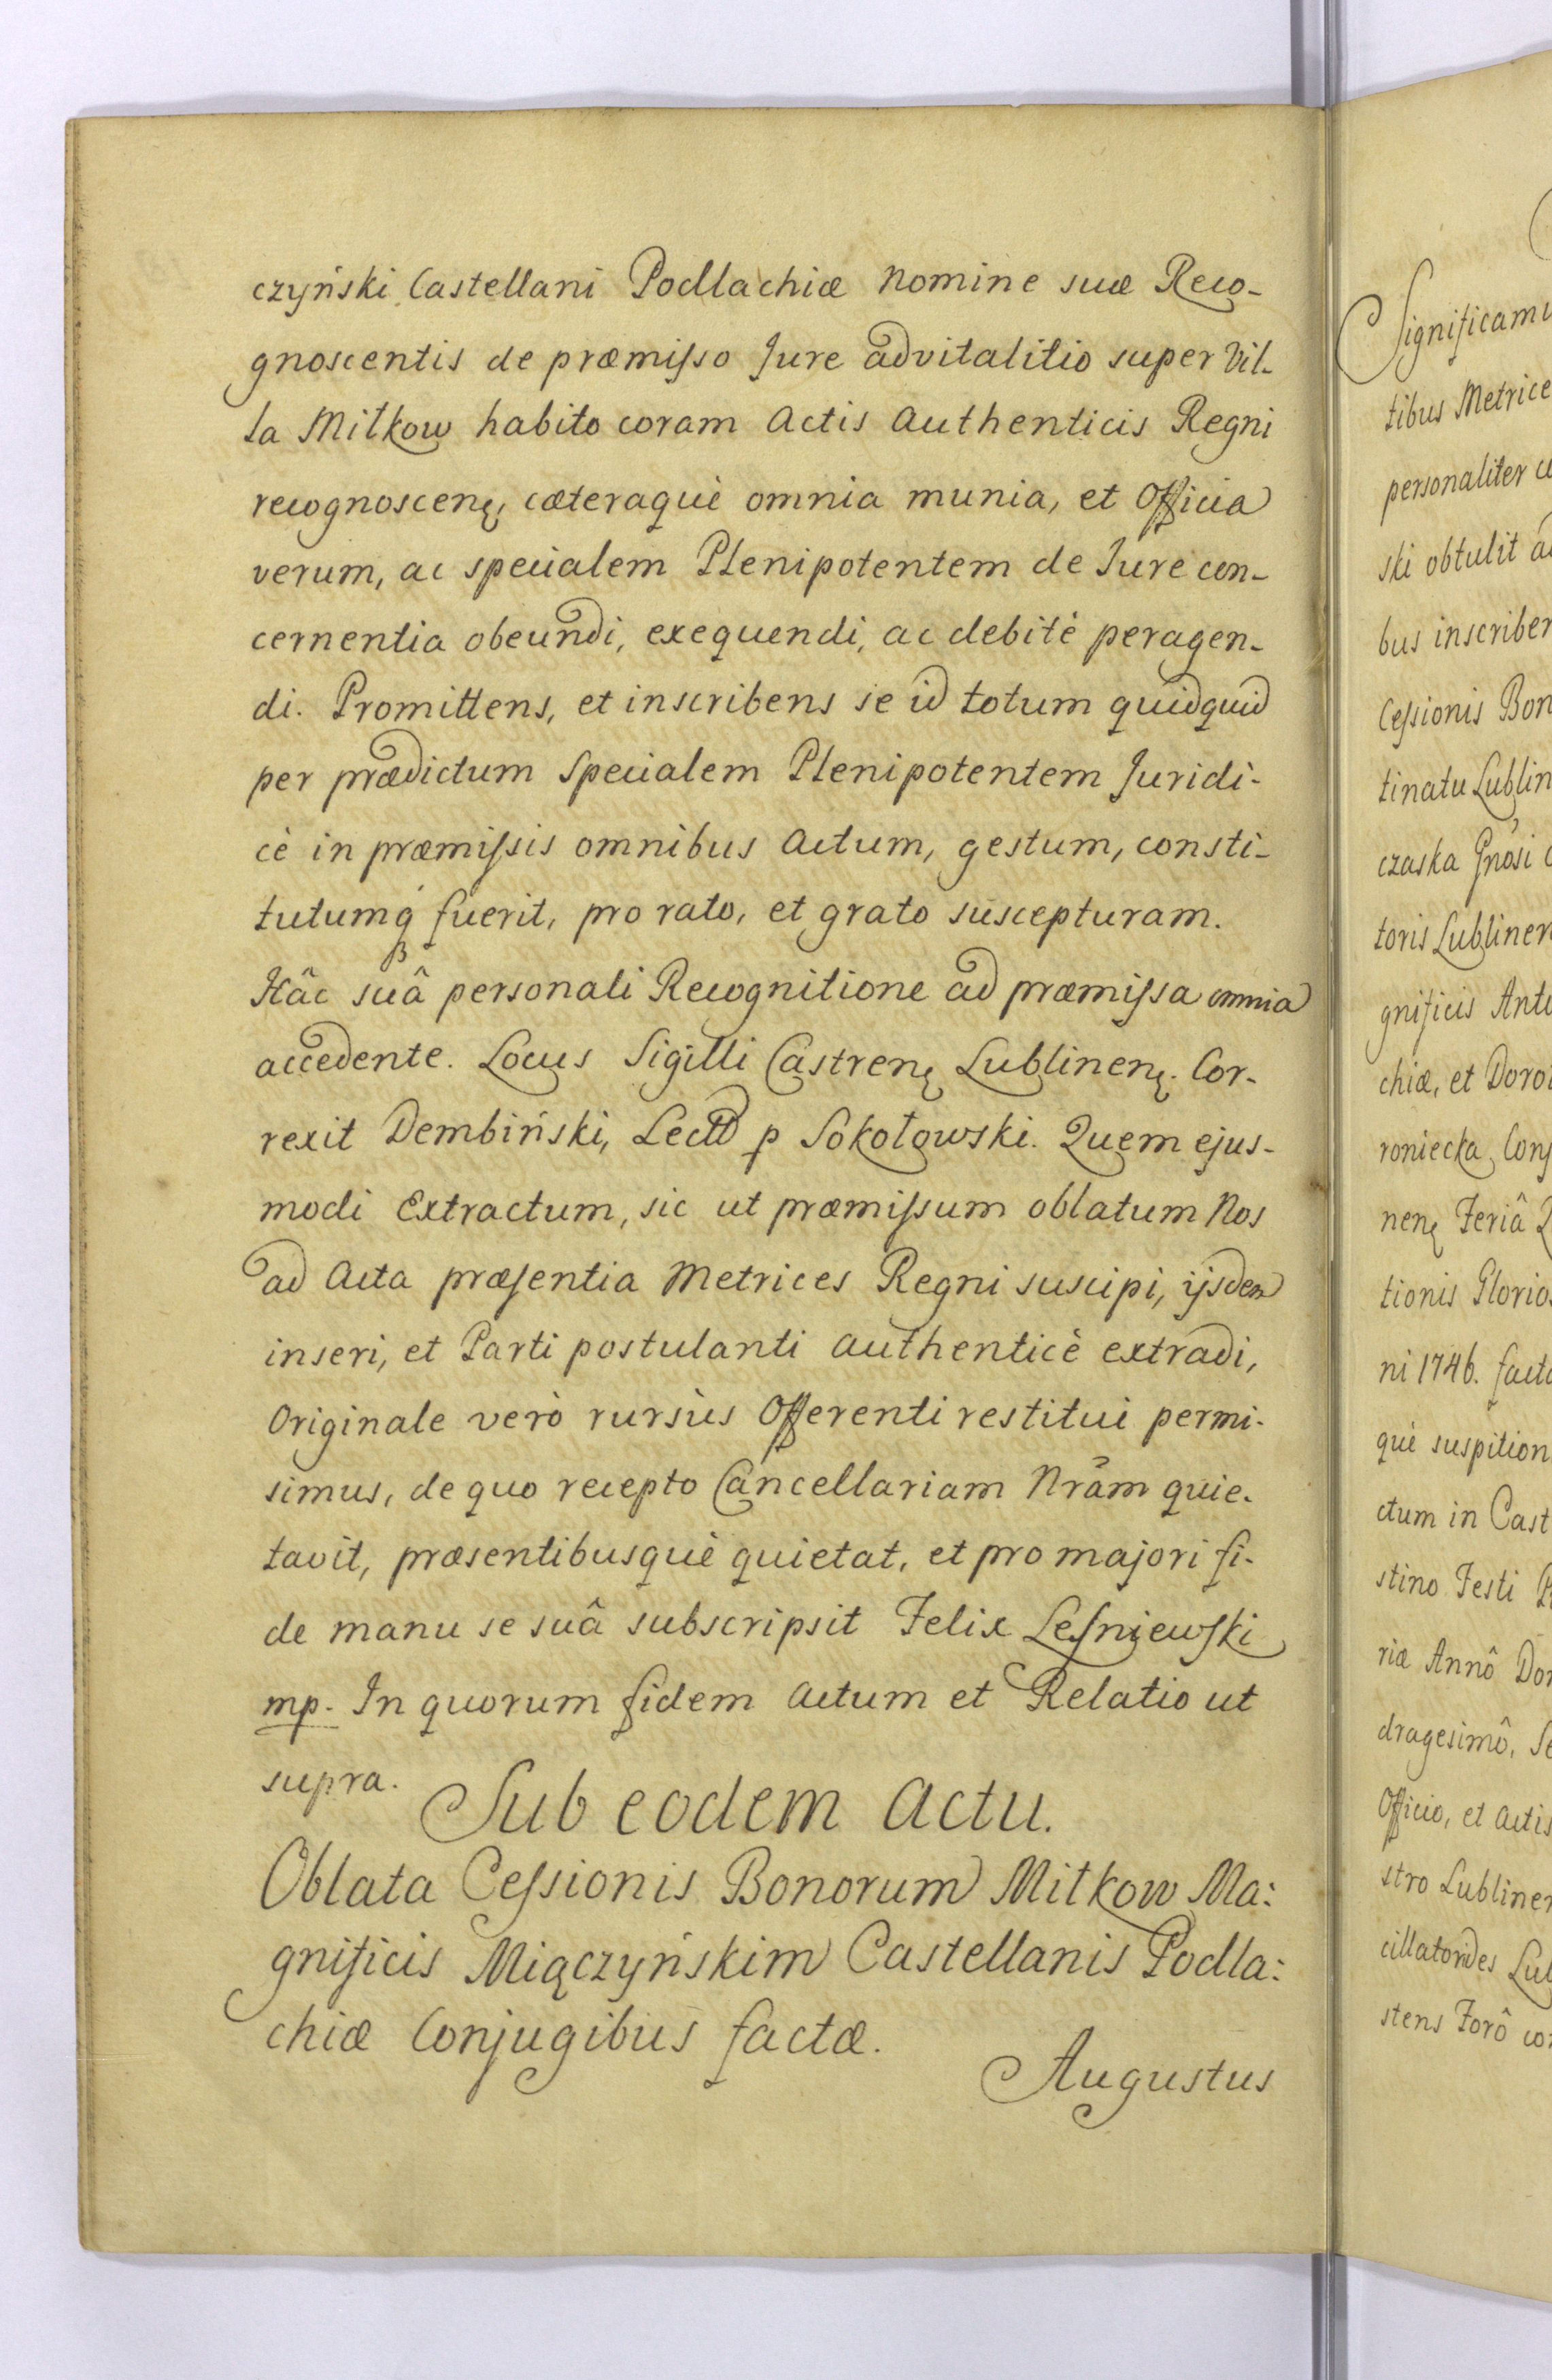 czyński Castellani Podlachiæ Nomine suæ Reco-
gnoscentis de præmisso Jure advitalitio super Vil-
la Mitkow habito coram Actis Authenticis Regni
recognoscenę, cæteraquè omnia munia, et Officia
verum, ac specialem Plenipotentem de Jure con-
cernentia obeundi, exequendi, ac debitè peragen-
di. Promittens, et inscribens se id totum quidquid
per prædictum Specialem Plenipotentem Juridi-
cè in præmissis omnibus Actum, gestum, consti-
tutumq́ fuerit, pro rato, et grato suscepturam.
Hâc suâ personali Recognitione ad præmissa omnia
accedente. Locus Sigilli Castrenę Lublinenę. Cor-
rexit Dembiński, Lectd p Sokołowski. Quem ejus-
modi Extractum, sic ut præmissum oblatum Nos
ad Acta præsentia Metrices Regni suscipi, ijsdem
inseri, et Parti postulanti authenticè extradi,
Originale verò rursùs Offerenti restitui permi-
simus, de quo recepto Cancellariam Nram̃ quie-
tavit, præsentibusquè quietat, et pro majori fi-
de manu se suâ subscripsit Felix Leśniewski
mp. In quorum fidem Actum et Relatio ut
supra.
Sub eodem Actu.
Oblata Cessionis Bonorum Mitkow Ma:
gnificis Miączyńskim Castellanis Podla:
chiæ Conjugibus factæ.
Augustus
Significamu
tibus Metrice
personaliter
ski obtulit
bus inscriben
Cessionis Bon
tinatu Lublin
czaska Gnosi
toris Lublinen
gnificis Anto
chiæ, et Doro
roniecka Conj
nenę Feriâ
tionis Glorio
ni 1746. facta
què suspition
ctum in Cast
stino Festi
riæ Annô Dom
dragesimô, Se
Officio, et Actis
stro Lublinen
cillatorides Lub
stens Forô co